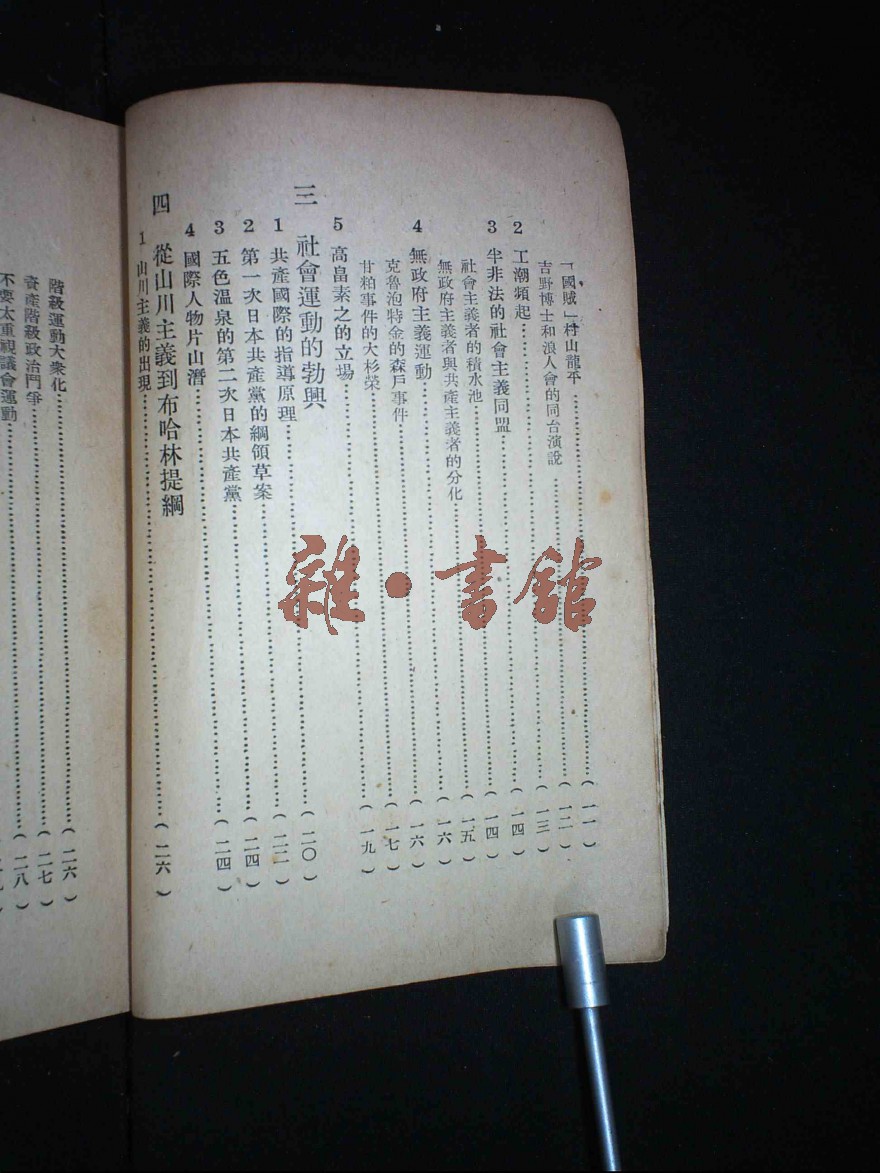 「國賊」村山龍平……(一一)
吉野博士和浪人會的同台演說……(一二)
2 工潮頻起……(一三)
3 半非法的社會主義同盟……(一四)
社會主義者的積水池……(一四)
無政府主義者與共產主義者的分化……(一五)
4 無政府主義運動……(一六)
克魯泡特金的森戶事件……(一六)
甘粕事件的大杉榮……(一七)
5 高畠素之的立場……(一九)
三 社會運動的勃興
1 共產國際的指導原理……(二〇)
2 第一次日本共產黨的綱領草案……(二二)
3 五色温泉的第二次日本共產黨……(二四)
4 國際人物片山潛……(二四)
四 從山川主義到布哈林提綱
1 山川主義的出現……(二六)
階級運動大衆化……(二六)
資產階級政治鬥爭……(二七)
不要太重視議會運動……(二八)
雜·書館